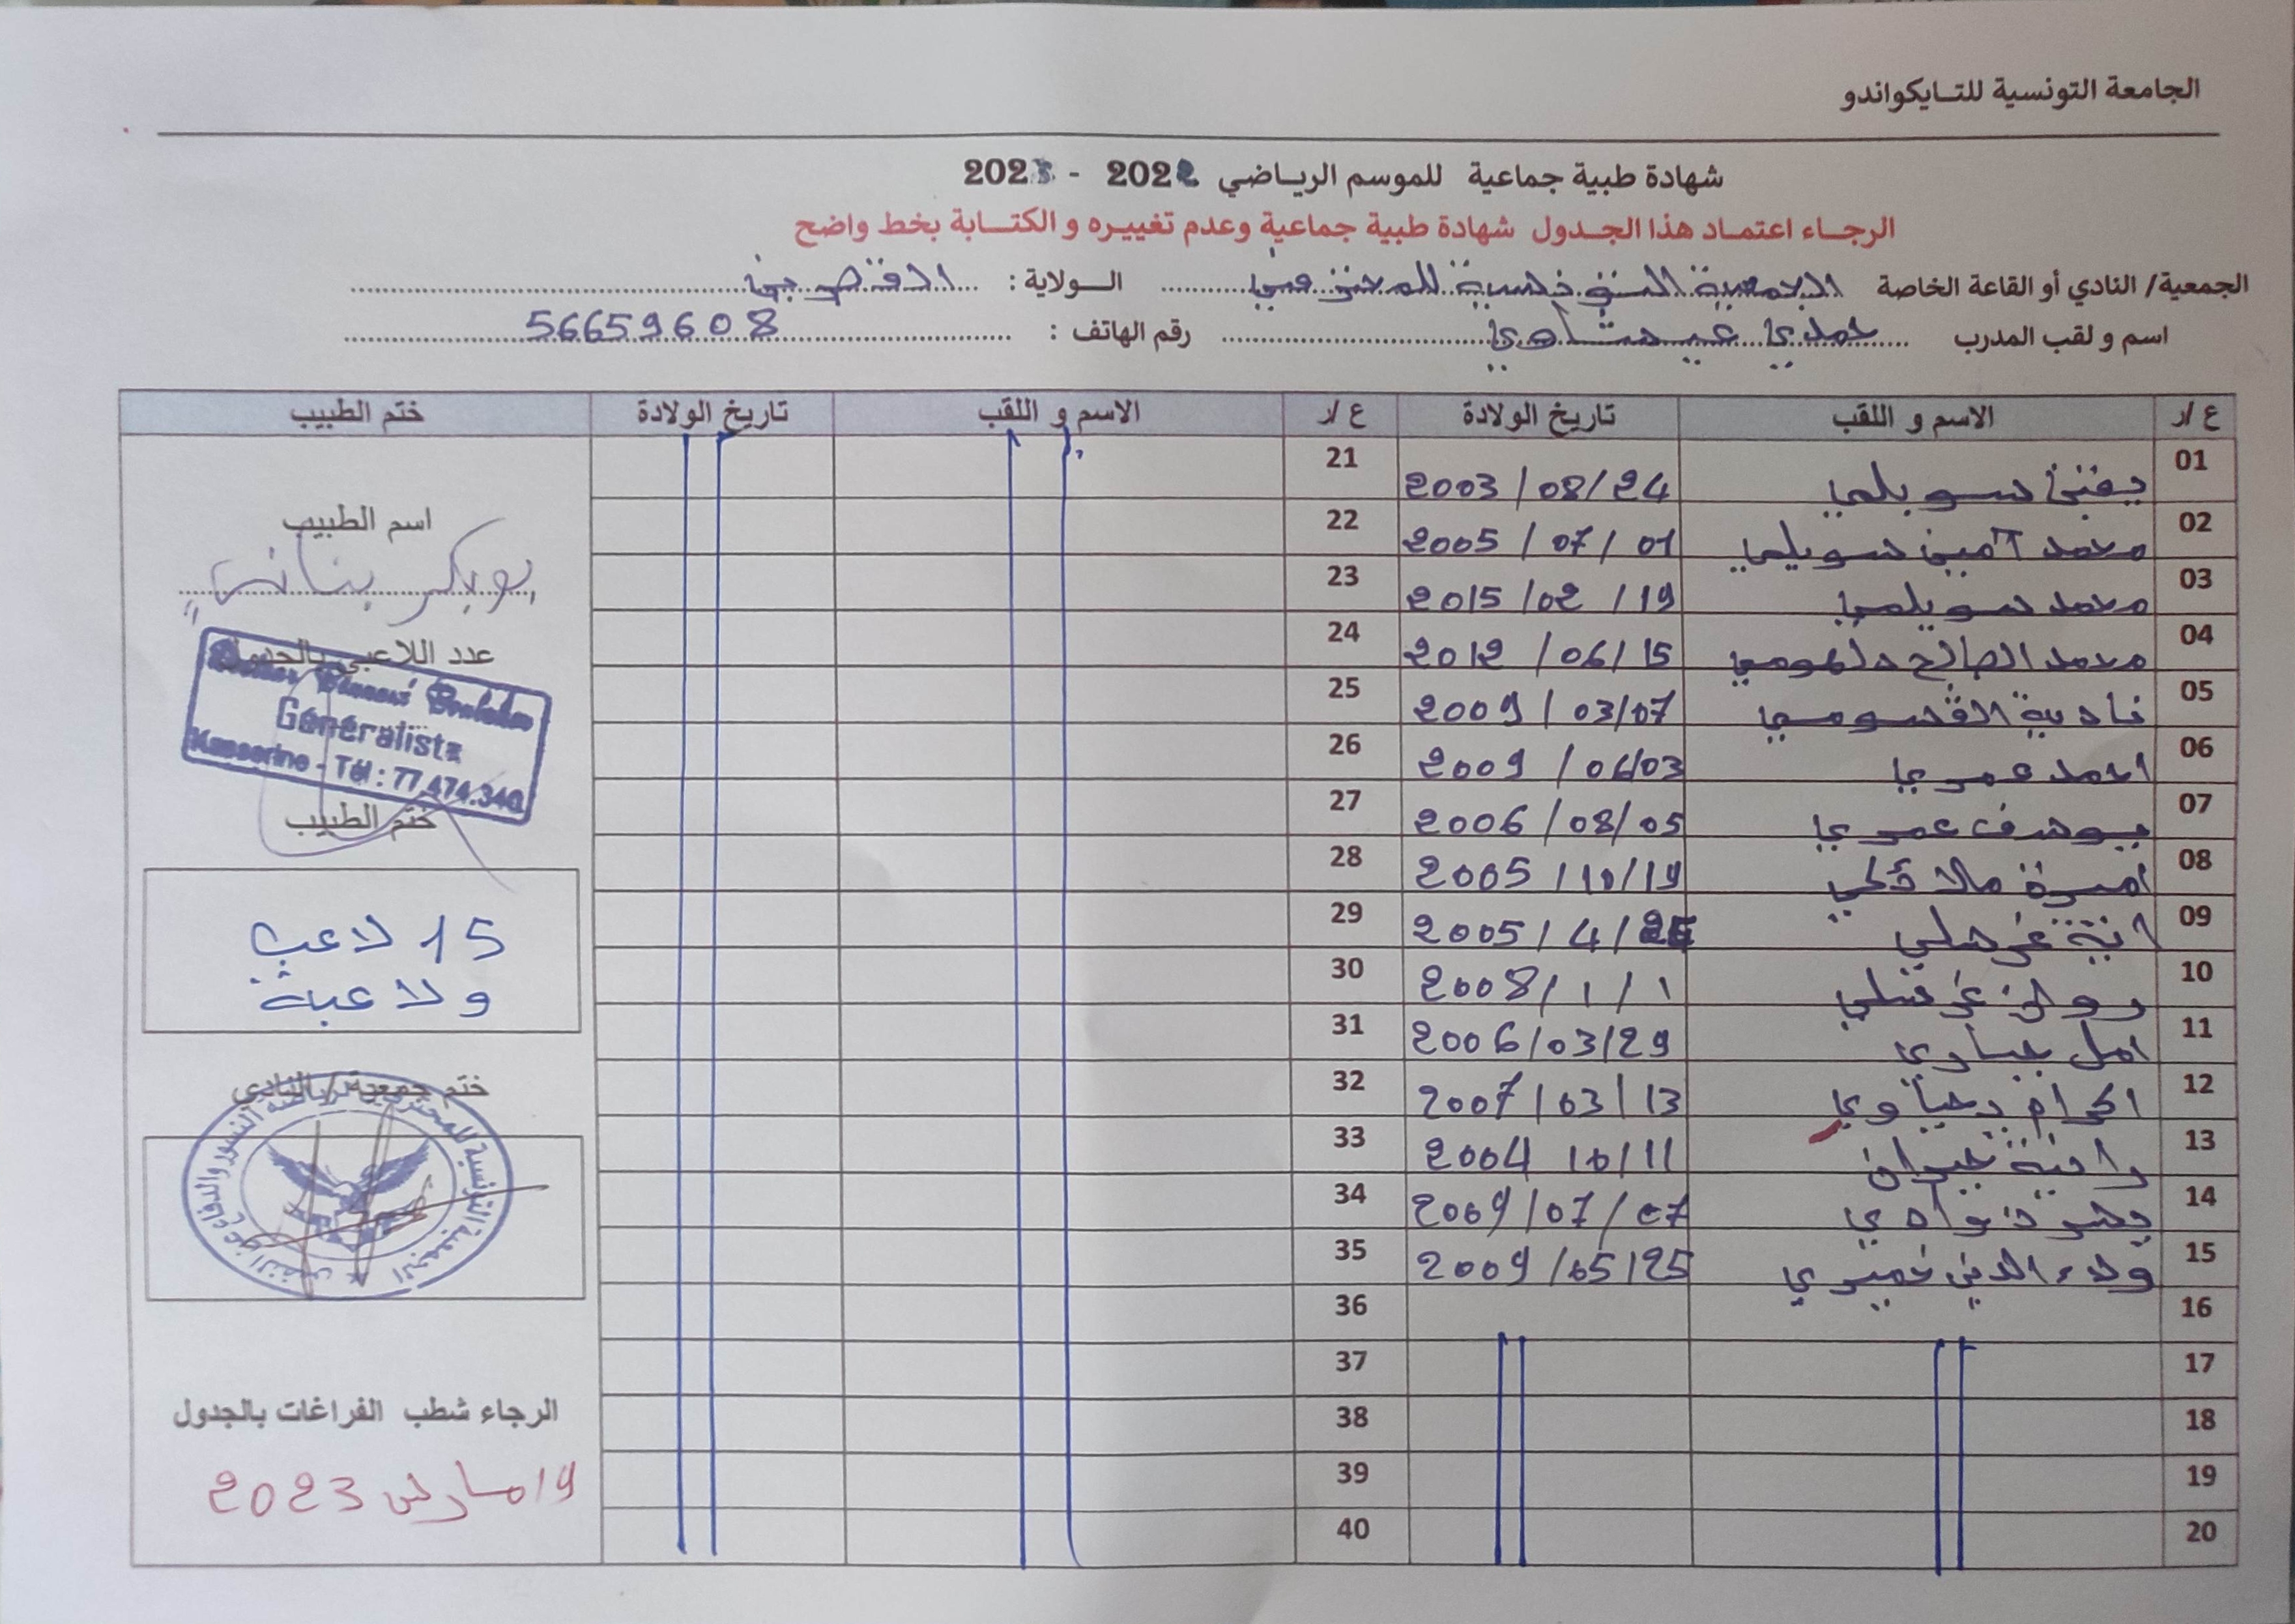 الجامعة التونسية للتايكواندو
شهادة طبية جماعية للموسم الرياضي 2022 - 2023
الرجاء اعتماد هذا الجدول شهادة طبية جماعية وعدم تغييره و الكتابة بخط واضح
الجمعية/ النادي أو القاعة الخاصة الجمعية التونسية للمحترفين الولاية : القصرين
اسم و لقب المدرب حمدي عيشاوي رقم الهاتف : 56659608
ع/ر الاسم و اللقب تاريخ الولادة ع/ر الاسم و اللقب تاريخ الولادة ختم الطبيب
01 يقين سويلمي 2003/08/24 21
02 محمد أمين سويلمي 2005/07/01 22
03 محمد سويلمي 2015/02/19 23
04 محمد الصالح 2012/06/15 24
05 نادية القسومي 2009/03/07 25
06 احمد عمري 2009/06/03 26
07 يوسف عمري 2006/08/05 27
08 اميرة 2005/10/19 28
09 آية غرسلي 2005/4/ 29
10 روان غرسلي 2008/1/1 30
11 امل جباري 2006/03/29 31
12 اكرام يحياوي 2007/03/13 32
13 رانية 2004 10/11 33
14 يسر ذوادي 2009/07/07 34
15 ولاء الدين خميري 2009/05/25 35
16 36
17 37
18 38
19 39
20 40
اسم الطبيب
بوبكر بناني
عدد اللاعبين بالجدول
Généraliste
Kasserine - Tél : 77.474.340
ختم الطبيب
15 لاعب
ولاعبة
ختم جمعية / بالنادي
الجمعية التونسية للمحترفين لرياضة النسور والدفاع عن النفس
الرجاء شطب الفراغات بالجدول
19 مارس 2023